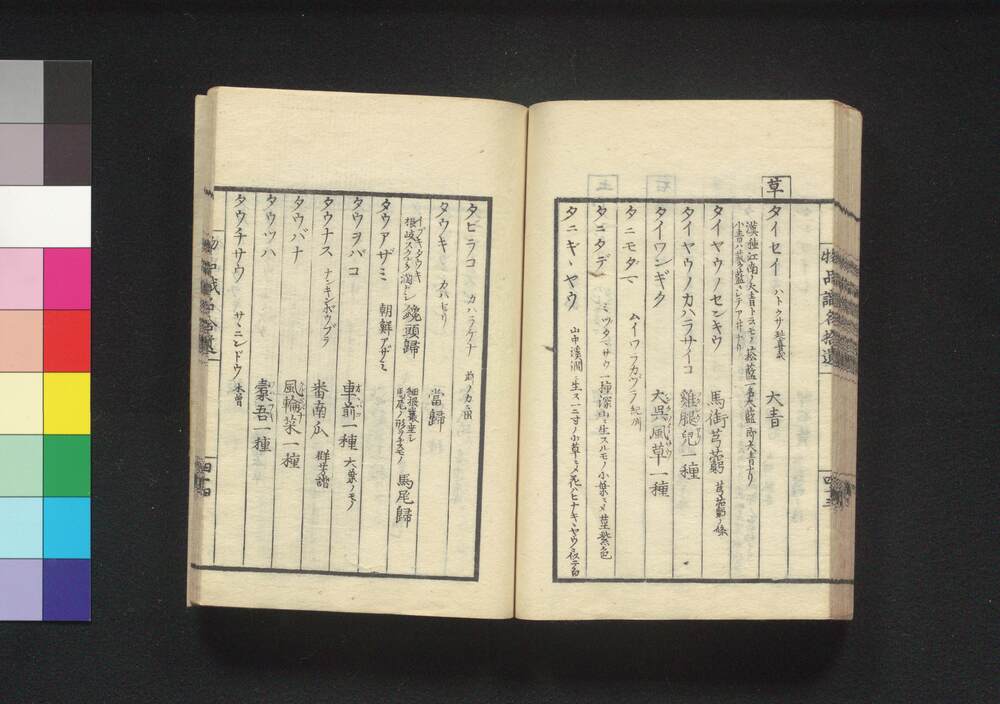 草
タイセイ ハトクサ 大青
漢種江南ノ大青トスモノ菘藍一名大藍 即大青ナリ
タイヤウノセンキウ 馬銜芎藭 芎藭ノ條
タイヤウノカハラサイコ 雞腿兒一種
タイワンギク 大呉風草一種
タニモダマ ムイワフカヅラ 紀州
タニタデ ミヅタマサウ 一種深山ニ生スルモノ小葉ニメ茎紫色
タニギヽヤウ 山中溪澗ニ生ス一二寸ノ小草ニメ花ハヒナギヽヤウニ似テ白
物品識名拾遺
四十三
タビラコ カハラケナ
タウキ カハゼリ 當歸
イブキタウキ
根岐スクナク潤ヒシ 鑱頭歸
細根叢生シ
馬尾ノ形ヲナスモノ 馬尾歸
タウアザミ 朝鮮アザミ
タウヲバコ 車前一種 大葉ノモノ
タウナス ナンキンボウブラ 番南瓜 群芳譜
タウバナ 風輪菜一種
タウツハ 橐吾一種
タウチサウ サヽニンドウ 木曽
四十四